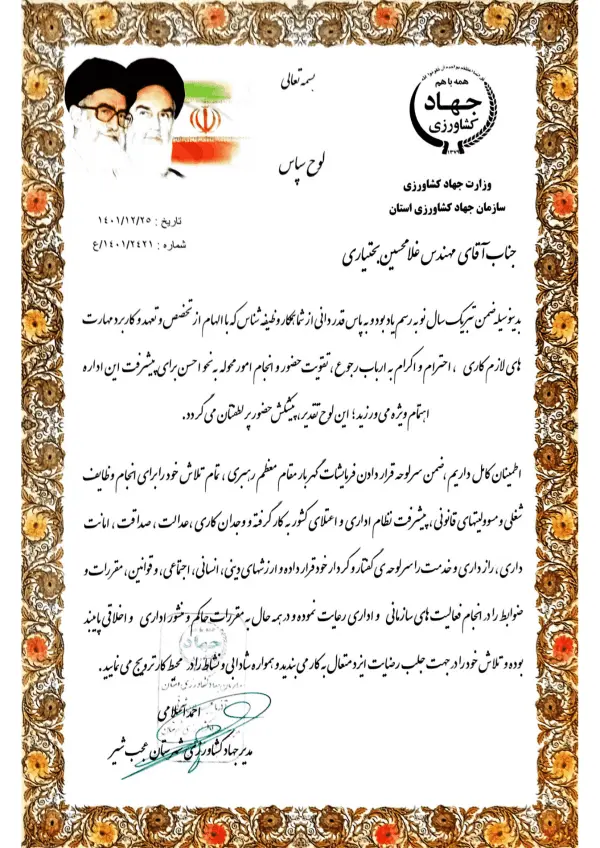 بسمه تعالی
همه با هم
جهاد
کشاورزی
۱۳۷۹
لوح سپاس
وزارت جهاد کشاورزی
سازمان جهاد کشاورزی استان
تاریخ : ١٤٠١/١٢/٢٥
شماره : ١٤٠١/٢٤٢١/ع
جناب آقای مهندس غلامحسین بختیاری
بدینوسیله ضمن تبریک سال نو به رسم یادبود و به پاس قدردانی از شما همکار وظیفه شناس که با الهام از تخصص و تعهد و کاربرد مهارت
های لازم کاری ، احترام و اکرام به ارباب رجوع ، تقویت حضور و انجام امور محوله به نحو احسن برای پیشرفت این اداره
اهتمام ویژه می ورزید ؛ این لوح تقدیر، پیشکش حضور پر لطفتان می گردد.
اطمینان کامل داریم ، ضمن سرلوحه قرار دادن فرمایشات گهربار مقام معظم رهبری ، تمام تلاش خود را برای انجام وظایف
شغلی و مسوولیتهای قانونی ، پیشرفت نظام اداری و اعتلای کشور به کار گرفته و وجدان کاری ، عدالت ، صداقت ، امانت
داری ، رازداری و خدمت را سرلوحه ی گفتار و کردار خود قرار داده و ارزشهای دینی، انسانی، اجتماعی، و قوانین، مقررات و
ضوابط را در انجام فعالیت های سازمانی و اداری رعایت نموده و در همه حال به مقررات حاکم و منشور اداری و اخلاقی پایبند
بوده و تلاش خود را در جهت جلب رضایت ایزد متعال به کار می بندید و همواره شادابی و نشاط را در محیط کار ترویج می نمایید.
جهاد
احمد اسلامی
مدیر جهاد کشاورزی شهرستان عجب شیر